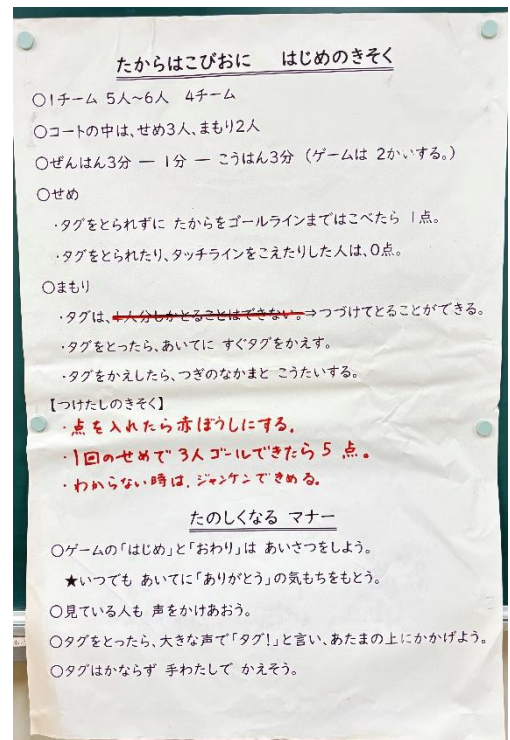 たからはこびおに　はじめのきそく
○1チーム 5人～6人　4チーム
○コートの中は、せめ3人、まもり2人
○ぜんはん3分 ― 1分 ― こうはん3分（ゲームは 2かいする。）
○せめ
・タグをとられずに たからをゴールラインまではこべたら 1点。
・タグをとられたり、タッチラインをこえたりした人は、0点。
○まもり
・タグは、1人分しかとることはできない。⇒つづけてとることができる。
・タグをとったら、あいてに すぐタグをかえす。
・タグをかえしたら、つぎのなかまと こうたいする。
【つけたしのきそく】
・点を入れたら赤ぼうしにする。
・1回のせめで3人ゴールできたら5点。
・わからない時は、ジャンケンできめる。
たのしくなる マナー
○ゲームの「はじめ」と「おわり」は あいさつをしよう。
★いつでも あいてに「ありがとう」の気もちをもとう。
○見ている人も 声をかけあおう。
○タグをとったら、大きな声で「タグ！」と言い、あたまの上にかかげよう。
○タグはかならず 手わたしで かえそう。